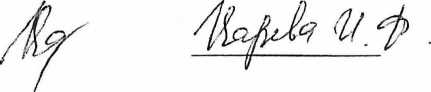 Карева И. Ф.